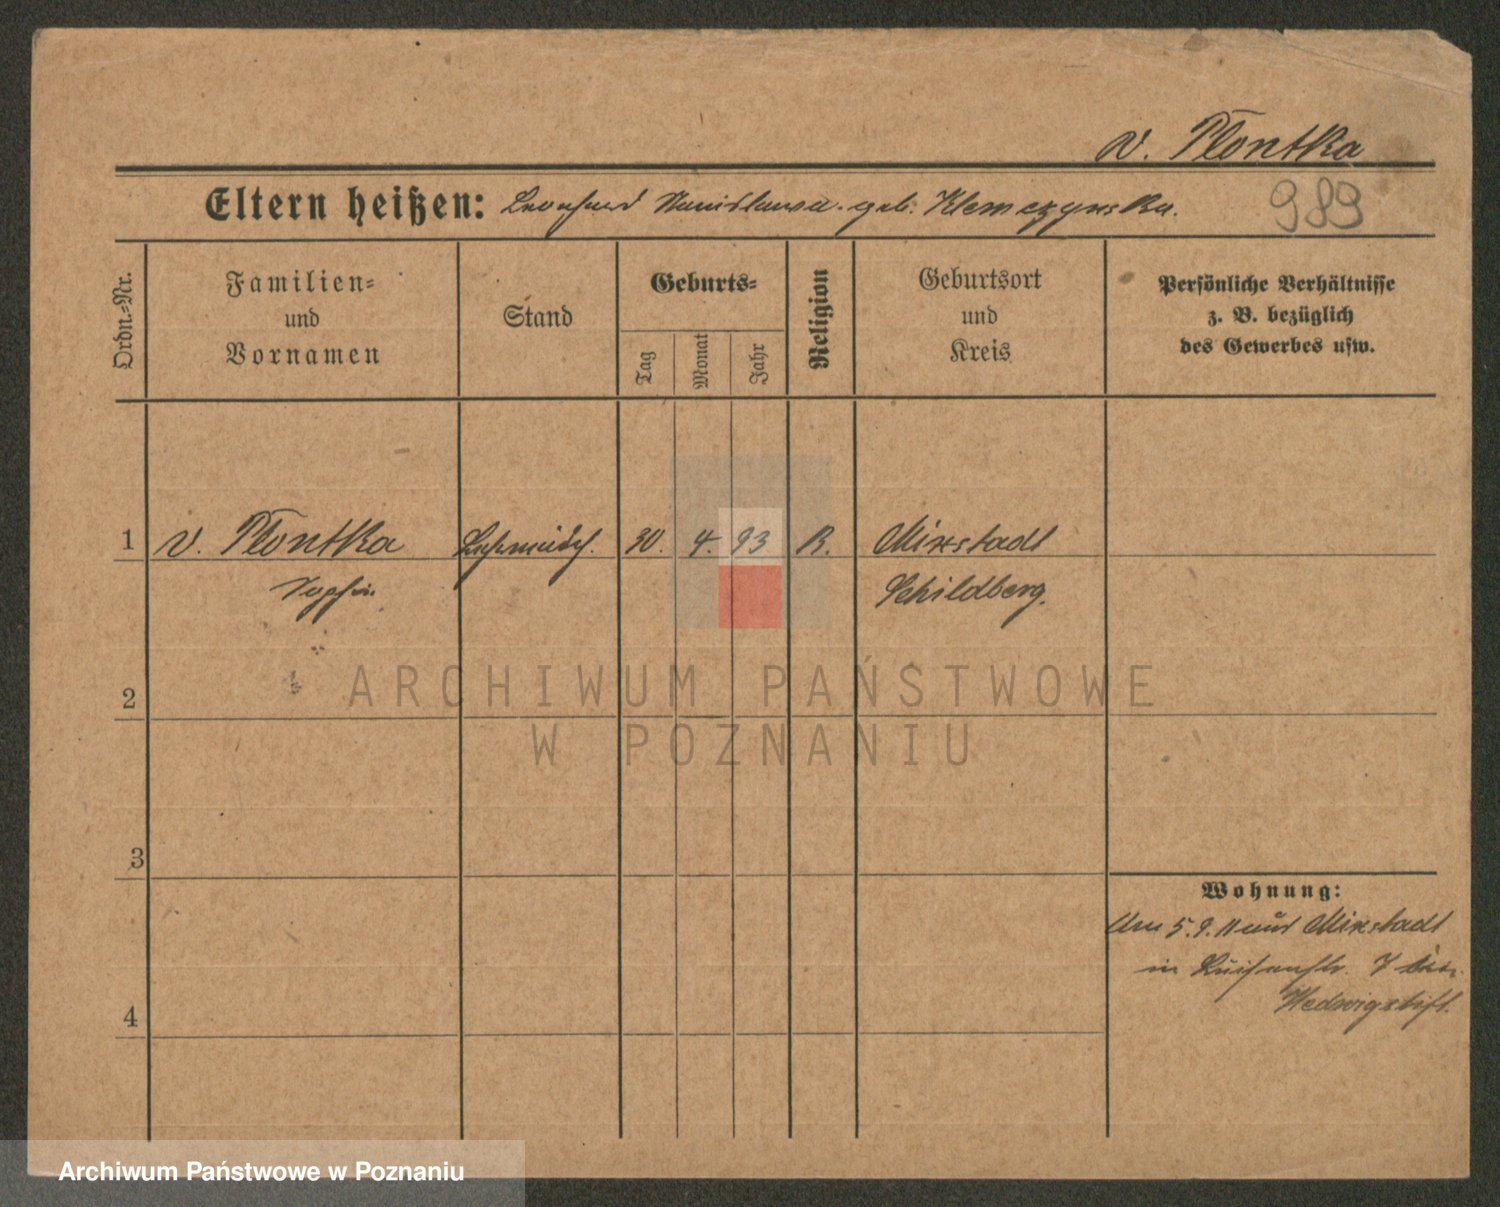 v. Płontka
Eltern heißen: Leonhard Stanislawa geb. Klemczynska.
989
Ordn.-Nr.
Familien-
und
Vornamen
Stand
Geburts-
Tag
Monat
Jahr
Religion
Geburtsort
und
Kreis
Persönliche Verhältnisse
z. B. bezüglich
des Gewerbes usw.
1 v. Płontka Lehrmädch. 30. 4. 93 R. Mixstadt
Sophie Schildberg.
2
3
4
Wohnung:
Am 5.9.11 aus Mixstadt
in Luisenstr. 7
Hedwigstift.
ARCHIWUM PAŃSTWOWE
W POZNANIU
Archiwum Państwowe w Poznaniu